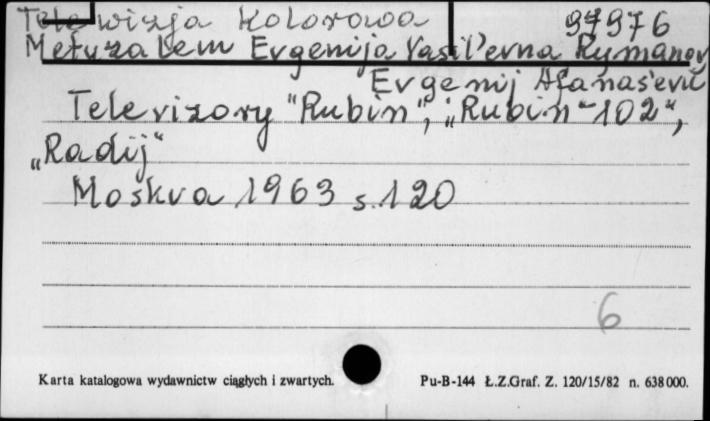 Telewizja kolorowa 97976
Metuzalem Evgenija Vasil'evna Rymanov
Evgenij Afanas'evič
Televizory "Rubin", „Rubin-102“,
„Radij“
Moskva 1963 s. 120
6
Karta katalogowa wydawnictw ciągłych i zwartych. Pu-B-144 Ł.Z.Graf. Z. 120/15/82 n. 638000.